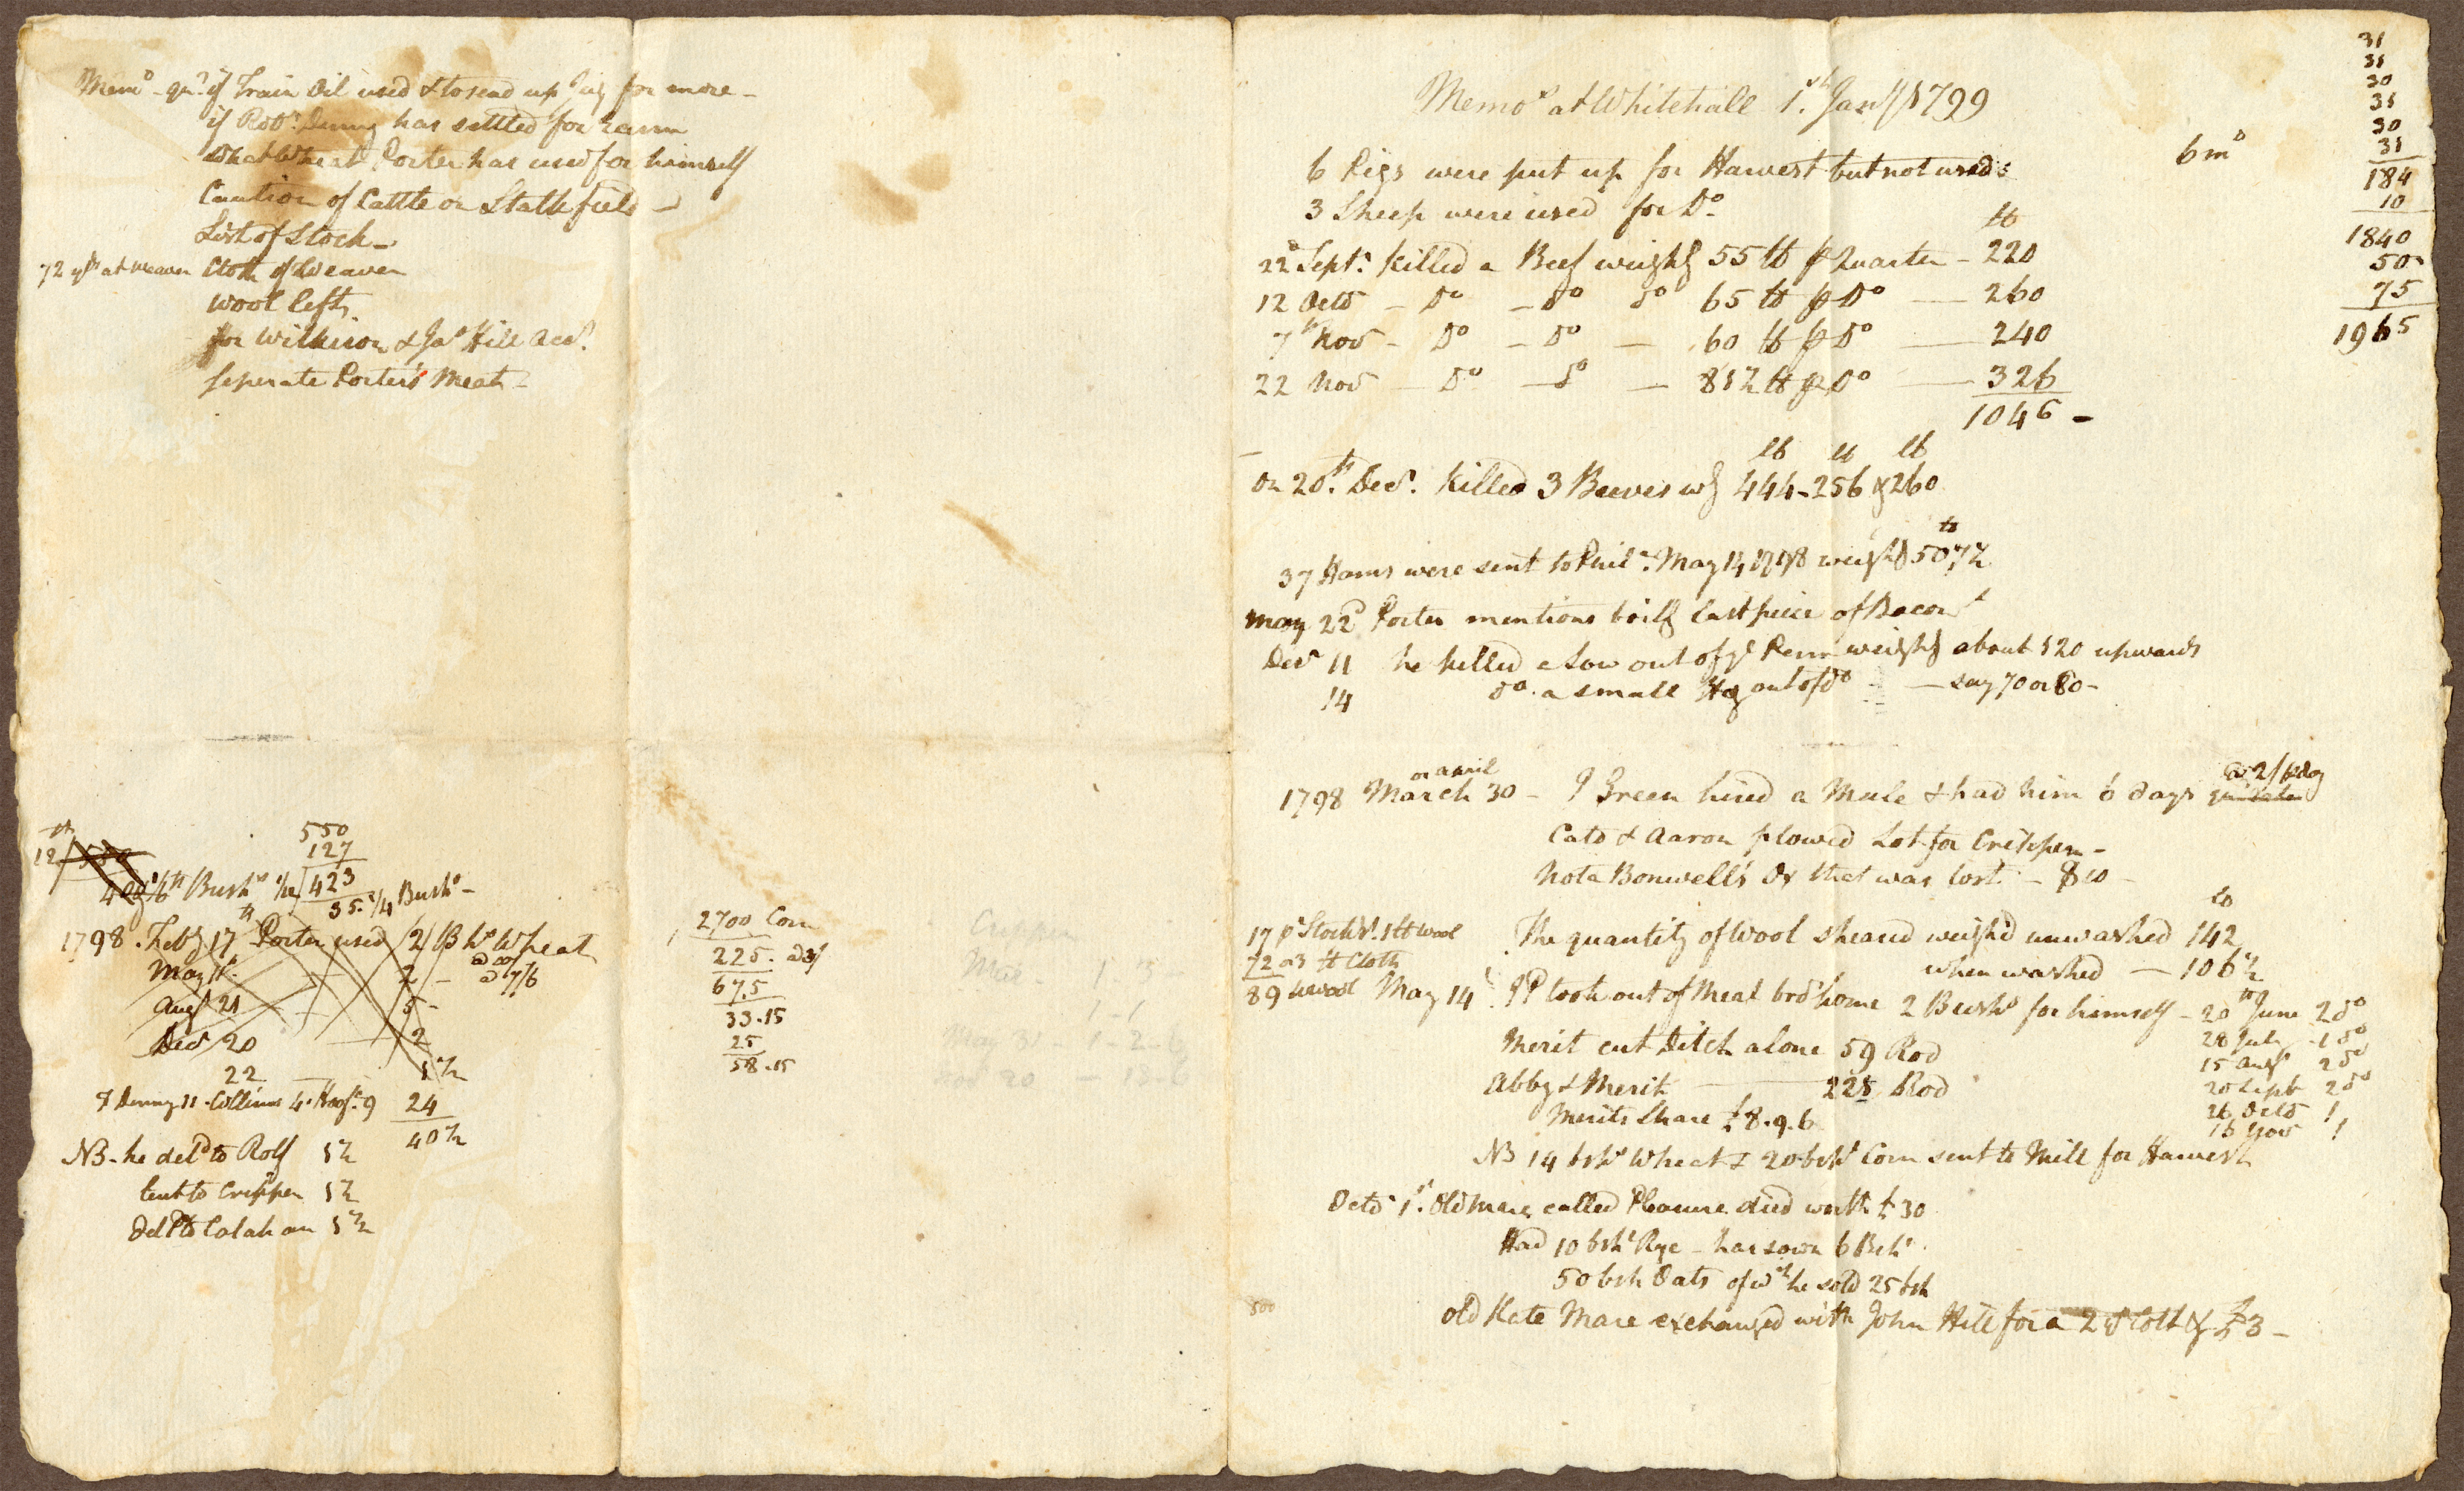 Memo - qu: if Train Oil used & to send up Jug for more -
if Robt. Denny has settled for
what Wheat Porter has used for himself
Caution of Cattle on Stalk field -
List of Stock -
72 yds at weaver Cloth of Weaver
wool left
for Wilkinson & Jas Hill Acct.
seperate Porter's Meat -
550
127
12/423
35.1/4 Bushs -
1798. Feby 17th Porter used 2 Bhs Wheat
May 11 2 - @ 7/6
Augt 21 5 -
Decr 20 2
22 1 1/2
Denny 11. Collins 4. Hogs. 9 24
40 1/2
NB - he deld to Rolf 1 1/2
lent to Crippen 1 1/2
Deld to Calahan 1 1/2
2700 Corn
225. @ 3/
67.5
33.15
25
58.15
Crippen
May 31 - 1 - 2 - 6
Memos at Whitehall 1st. Jany 1799
6 Pigs were put up for Harvest but not used:
3 Sheep were used for Do.
lb
22d Septr. Killed a Beef weighg 55 lb pr Quarter - 220
12 Octo - Do - Do Do 65 lb pr Do - 260
7th Nov - Do - Do - 60 lb pr Do - 240
22 Nov - Do - Do - 81 1/2 lb pr Do - 326
1046 -
lb lb lb
On 20th. Decr. Killed 3 Beeves wg 444 - 256 & 260
lb
37 Hams were sent to Phila. May 14 1798 weighg 507 1/2
May 22d Porter mentions boilg last piece of Bacon
Decr 11 he killed a Sow out of ye Penn weighg about 120 upwards
14 do. a small Hog out of do - say 70 or 80 -
or April
1798 March 30 - J Green hired a Mule & had him 6 days @ 2/ p day
Cato & Aaron plowed Lot for Crippen -
Nota Bonwell's Ox that was lost - $10 -
17 pr Stockgs. 1 lb wool
72 oz lb Cloth
89 lb wool
lb
The quantity of Wool sheared weigh'd unwashed 142
when washed - 106 1/2
May 14 JP took out of Meal bro't home 2 Bushs for himself - 20th June 2 do
28 July - 1 do
15 Augt 2 do
20 Sept 2 do
26 Octo 1
16 Nov 1
Merit cut Ditch alone 59 Rod
Abby & Merit - 228 Rod
Merits Share £8.9.6
NB 14 bshs Wheat & 20 bshs Corn sent to Mill for Harvest
Octo 1st. Old Mare called Pleasure died worth £30
Had 10 bshs Rye - has sown 6 Bshs
50 bsh Oats of wch he sold 25 bsh
Old Kate Mare exchanged with John Hill for a 2 yr Colt & £3 -
500
6 mo
31
31
30
31
30
31
184
10
1840
50
75
1965